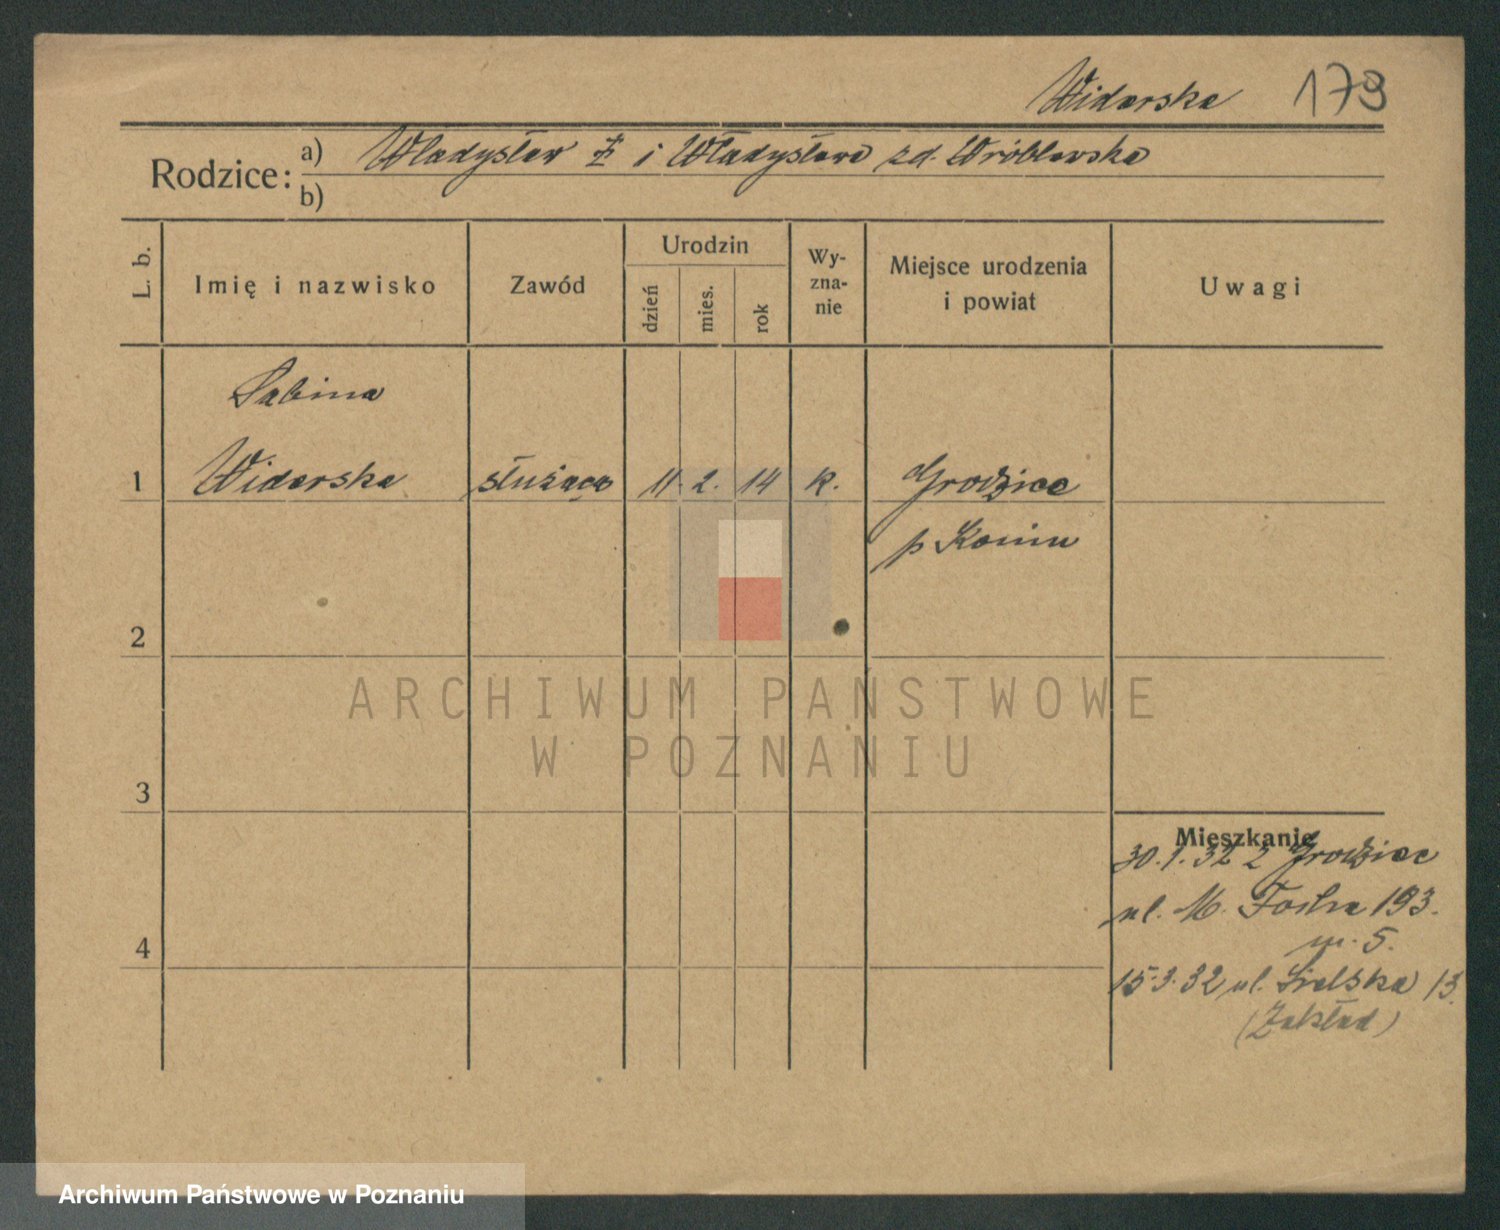 Widerska 179
Rodzice: a) Władysław ‡ i Władysława zd. Wróblewska
b)
L. b. Imię i nazwisko Zawód Urodzin dzień mies. rok Wy-zna-nie Miejsce urodzenia i powiat Uwagi
Sabina
1 Widerska służąca 11. 2. 14 R. Grodziec
p Konin
2
ARCHIWUM PAŃSTWOWE
W POZNANIU
3
Mieszkanie
30.1.32 z Grodziec
ul. M. Focha 193.
4 m. 5.
15.3.32 ul. Sielska 13.
(Zakład)
Archiwum Państwowe w Poznaniu